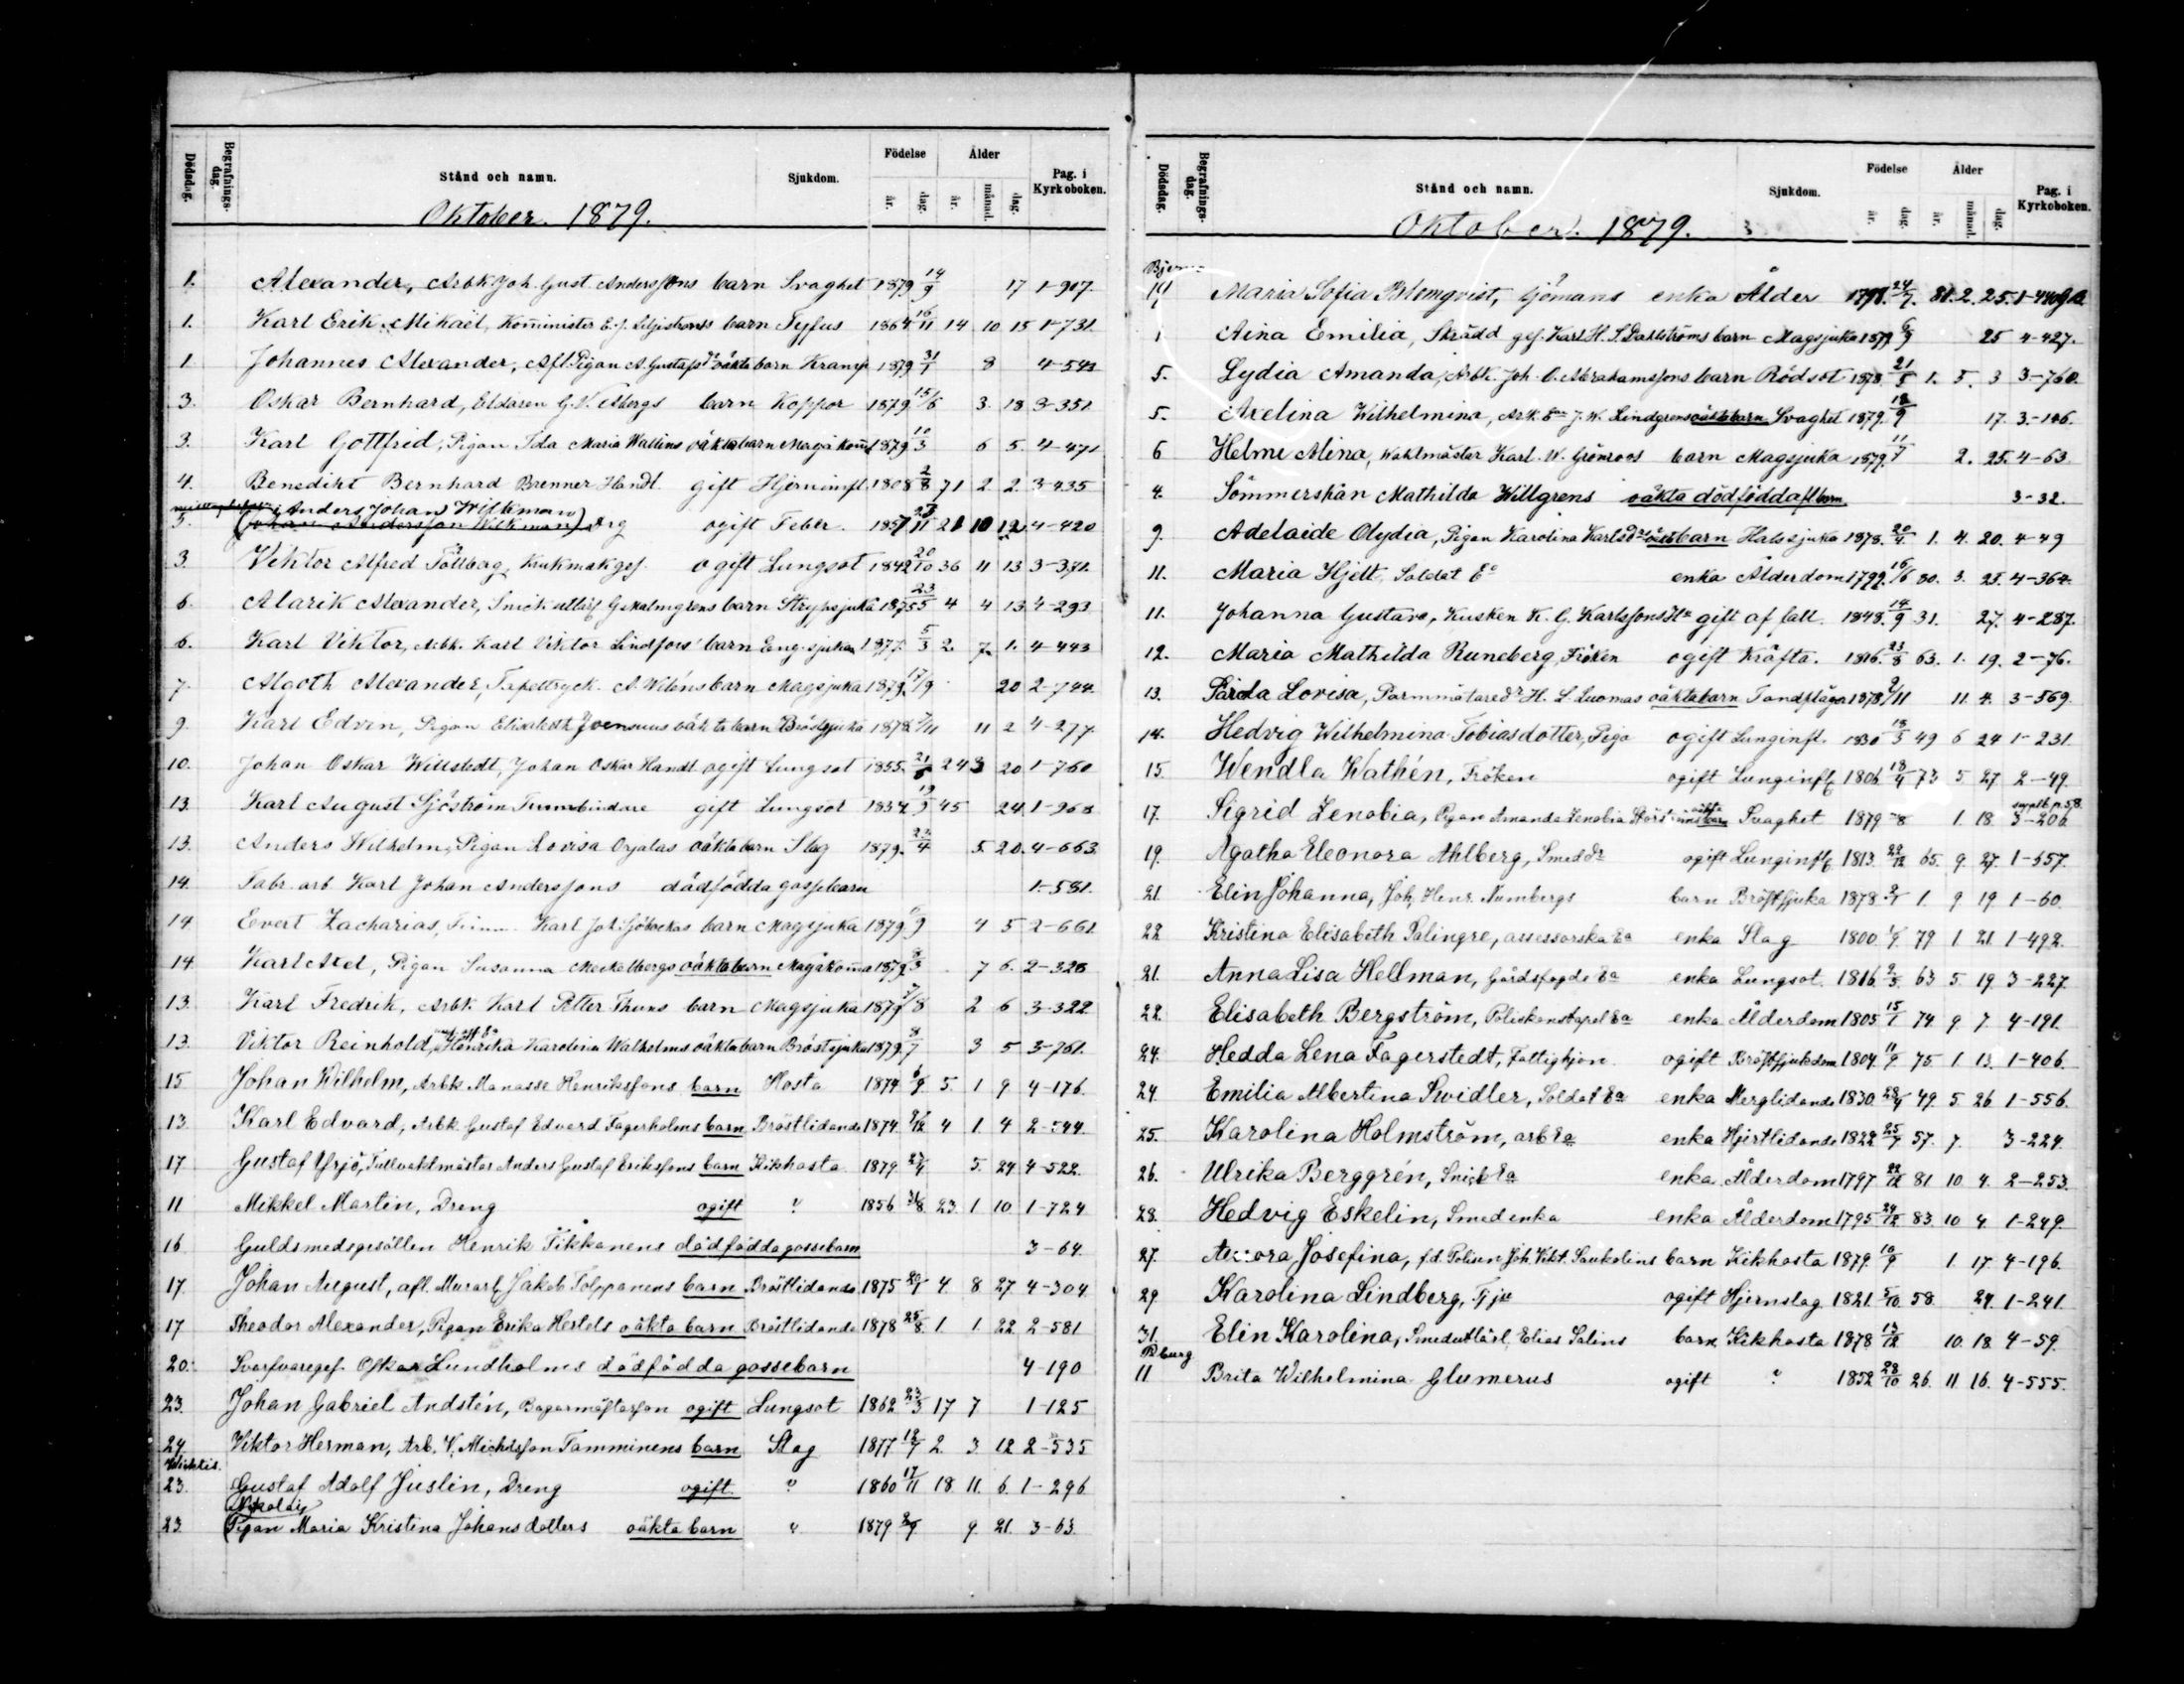 Dödsdag. Begrafnings-dag. Stånd och namn. Sjukdom. Födelse år. dag. Ålder år. månad. dag. Pag. i Kyrkoboken.
Oktober. 1879.
1. Alexander, Arbk Joh. Gust. Anderssons barn Svaghet 1879 14/9 17 1-907.
1. Karl Erik Mikaël, Kom̃inister E. J. barn Tyfus 1864 16/11 14 10 15 1-731.
1. Johannes Alexander, Afl. Pigan A. Gustafsdr oäkta barn Kramp 1879 31/1 8
3. Oskar Bernhard, Eldaren G. V. barn Koppor 1879 15/6 3. 18 3-351.
3. Karl Gottfrid, Pigan Ida Maria Wallins oäkta barn 1879 10/3 6 5. 4-471
4. Benedikt Bernhard Brenner Handl. gift Hjerninfl. 1808 2/8 71 2 2. 3-435
Anders Johan Wilkman
5. (Johan Andersson Wilkman) ogift Feber. 1857 21 10 12. 4-420
3. Viktor Alfred Tallberg, Krukmak.ges. ogift Lungsot 1842 20/10 36 11 13 3-
6. Alarik Alexander, Snick. barn Strypsjuka 1875 23/5 4 4 13 4-293
6. Karl Viktor, Arbk. Karl Viktor Lindfors' barn Eng.sjukan 1877. 5/3 2. 7. 1. 4-443
7. Algoth Alexander, Tapettryck. A. Wiléns barn Magsjuka 1879. 17/9 20 2-744.
9. Karl Edvin, Pigan Elisabeth Joensuus oäkta barn Bröstsjuka 1878. 7/11 11 2 4-277.
10. Johan Oskar Willstedt, Johan Oskar Handl ogift Lungsot 1855. 24 3 20. 1-760
13. Karl August Sjöström Tunnbindare gift Lungsot 1834. 19/9 45 24. 1-968
13. Anders Wilhelm, Pigan Lovisa Orjalas oäkta barn Slag 1879. 23/4 5. 20. 4-663.
14. Fabr. arb. Karl Johan Anderssons dödfödda gossebarn 1-581.
14. Evert Zacharias, Karl Joh. barn Magsjuka 1879 9 4 5 2-661
14. Karl Axel, Pigan Susanna Meckelbergs oäkta barn Magåkom̃a 1879 8/3 7 6. 2-328
13. Karl Fredrik, Arbk. Karl Petter Thuns barn Magsjuka 1879 7/8 2 6 3-322
13. Viktor Reinhold, Henrika Karolina Walholms oäkta barn Bröstsjuka 1879. 8/7 3 5 3-761.
15 Johan Wilhelm, Arbk Manasse Henrikssons barn Hosta 1874 6/9. 5. 1 9 4-176.
13. Karl Edvard, Arbk. Gustaf Edvard Fagerholms barn Bröstlidande 1874. 9/12 4 1. 4 2-544.
17 Gustaf Yrjö, Tullvaktmästar Anders Gustaf Erikssons barn Kikhosta 1879. 23/4 5. 24 4-522.
11 Mikkel Martin, Dreng ogift " 1856 31/8. 23. 1 10. 1-724
16 Guldsmedsgesällen Henrik Tikkanens dödfödda gossebarn 3-64.
17. Johan August, afl. Murarl. Jakob Tolppanens barn Bröstlidande 1875 20/1 4. 8 27. 4-304
17 Theodor Alexander, Pigan Erika Hertels oäkta barn Bröstlidande 1878 25/8 1. 1 22. 2-581
20. Svarfvareges. Oskar Lundholms dödfödda gossebarn 4-190
23. Johan Gabriel Andstén, Bagarmästarson ogift Lungsot 1862 23/3 17 7 1-125
24. Viktor Herman, Arb. V. Michelsson Tamminens barn Slag 1877 12/7 2. 3. 12 2-535
Wichtis.
23. Gustaf Adolf Juslin, Dreng ogift " 1860 17/11 18. 11. 6. 1-296
Nikolai
23. Pigan Maria Kristina Johansdotters oäkta barn " 1879 2/1 9. 21. 3-63.
Dödsdag. Begrafnings-dag. Stånd och namn. Sjukdom. Födelse år. dag. Ålder år. månad. dag. Pag. i Kyrkoboken.
Oktober. 1879.
Maria Sofia Blomqvist, Sjömans enka Ålder 24/7. 81. 2. 25.
1 Aina Emilia, Skrädd. ges. Karl H. S. Dahlströms barn Magsjuka 1879 6/9 25 4-427.
5. Lydia Amanda, Arbk. Joh. O. Abrahamssons barn Rödsot 1878. 21/5 1. 5. 3 3-760.
5. Axelina Wilhelmina, Arb. Ea J. W. Lindgrens oäkta barn Svaghet 1879. 18/9 17. 3-146.
6 Helmi Alina, Waktmäster Karl. W. Grönroos barn Magsjuka 1879. 11/7 2. 25. 4-63
4. Sömmerskan Mathilda Willgrens oäkta dödfödda fl. barn 3-32.
9. Adelaide Olydia, Pigan Karolina Karlsdrs oäkta barn Halssjuka 1878. 20/4. 1. 4. 20. 4-49
11. Maria Hjelt, Soldat Ea enka Ålderdom 1799. 16/6 80. 3. 25. 4-364.
11. Johanna Gustava, Kusken K. G. Karlssons Hu gift af fall. 1848. 14/9 31. 27. 4-287.
12. Maria Mathilda Runeberg, Fröken ogift Kräfta. 1816. 23/8 63. 1. 19. 2-76.
13. Lovisa, H. L. Luomas oäkta barn Tandplågor 1878 9/11 11. 4. 3-569.
14. Hedvig Wilhelmina Tobiasdotter, Piga ogift Lunginfl. 1830 18/3 49 6 24 1-231.
15. Wendla Wathén, Fröken ogift Lunginfl. 1806 18/4 73 5 27. 2-49.
17. Sigrid Zenobia, Pigan Amanda Zenobia oäkta barn Svaghet 1879 8 1. 18. 3-206.
19. Agatha Eleonora Ahlberg, Smeddr ogift Lunginfl. 1813. 22/12 65. 9. 27. 1-557.
21. Elin Johanna, Joh. Henr. Numbergs barn Bröstsjuka 1878 2/1 1. 9 19 1-60.
22 Kristina Elisabeth Palingre, assessorska Ea enka Slag 1800. 1/9. 79 1. 21. 1-492.
21. Anna Lisa Hellman, Gårdsfogde Ea enka Lungsot. 1816. 2/5. 63 5. 19. 3-227.
22. Elisabeth Bergström, Poliskonstapel Ea enka Ålderdom 1805 15/1 74. 9 7. 4-191.
24. Hedda Lena Fagerstedt, Fattighjon. ogift Bröstsjukdom 1804. 11/9 75. 1. 13. 1-406.
24. Emilia Albertina Swidler, Soldat Ea enka Merglidande 1830. 28/4 49. 5. 26. 1-556.
25. Karolina Holmström, arb Ea enka Hjertlidande 1822 25/7 57. 7. 3-224.
26. Ulrika Berggrén, Snick Ea enka Ålderdom 1797 22/12 81. 10 4. 2-253.
28. Hedvig Eskelin, Smedenka enka Ålderdom 1795 24/12 83. 10 4. 1-249.
27. Josefina, f.d. Polisen Joh. Vikt. Saukolins barn Kikhosta 1879. 10/9 1. 17. 4-196.
29. Karolina Lindberg, ogift Hjernslag 1821. 5/10 58. 24. 1-241.
31. Elin Karolina, Smedutlärl. Elias Salins barn Kikhosta 1878 13/12 10. 18. 4-59.
11 Brita Wilhelmina Glumerus ogift " 1852 28/10 26. 11. 16. 4-555.